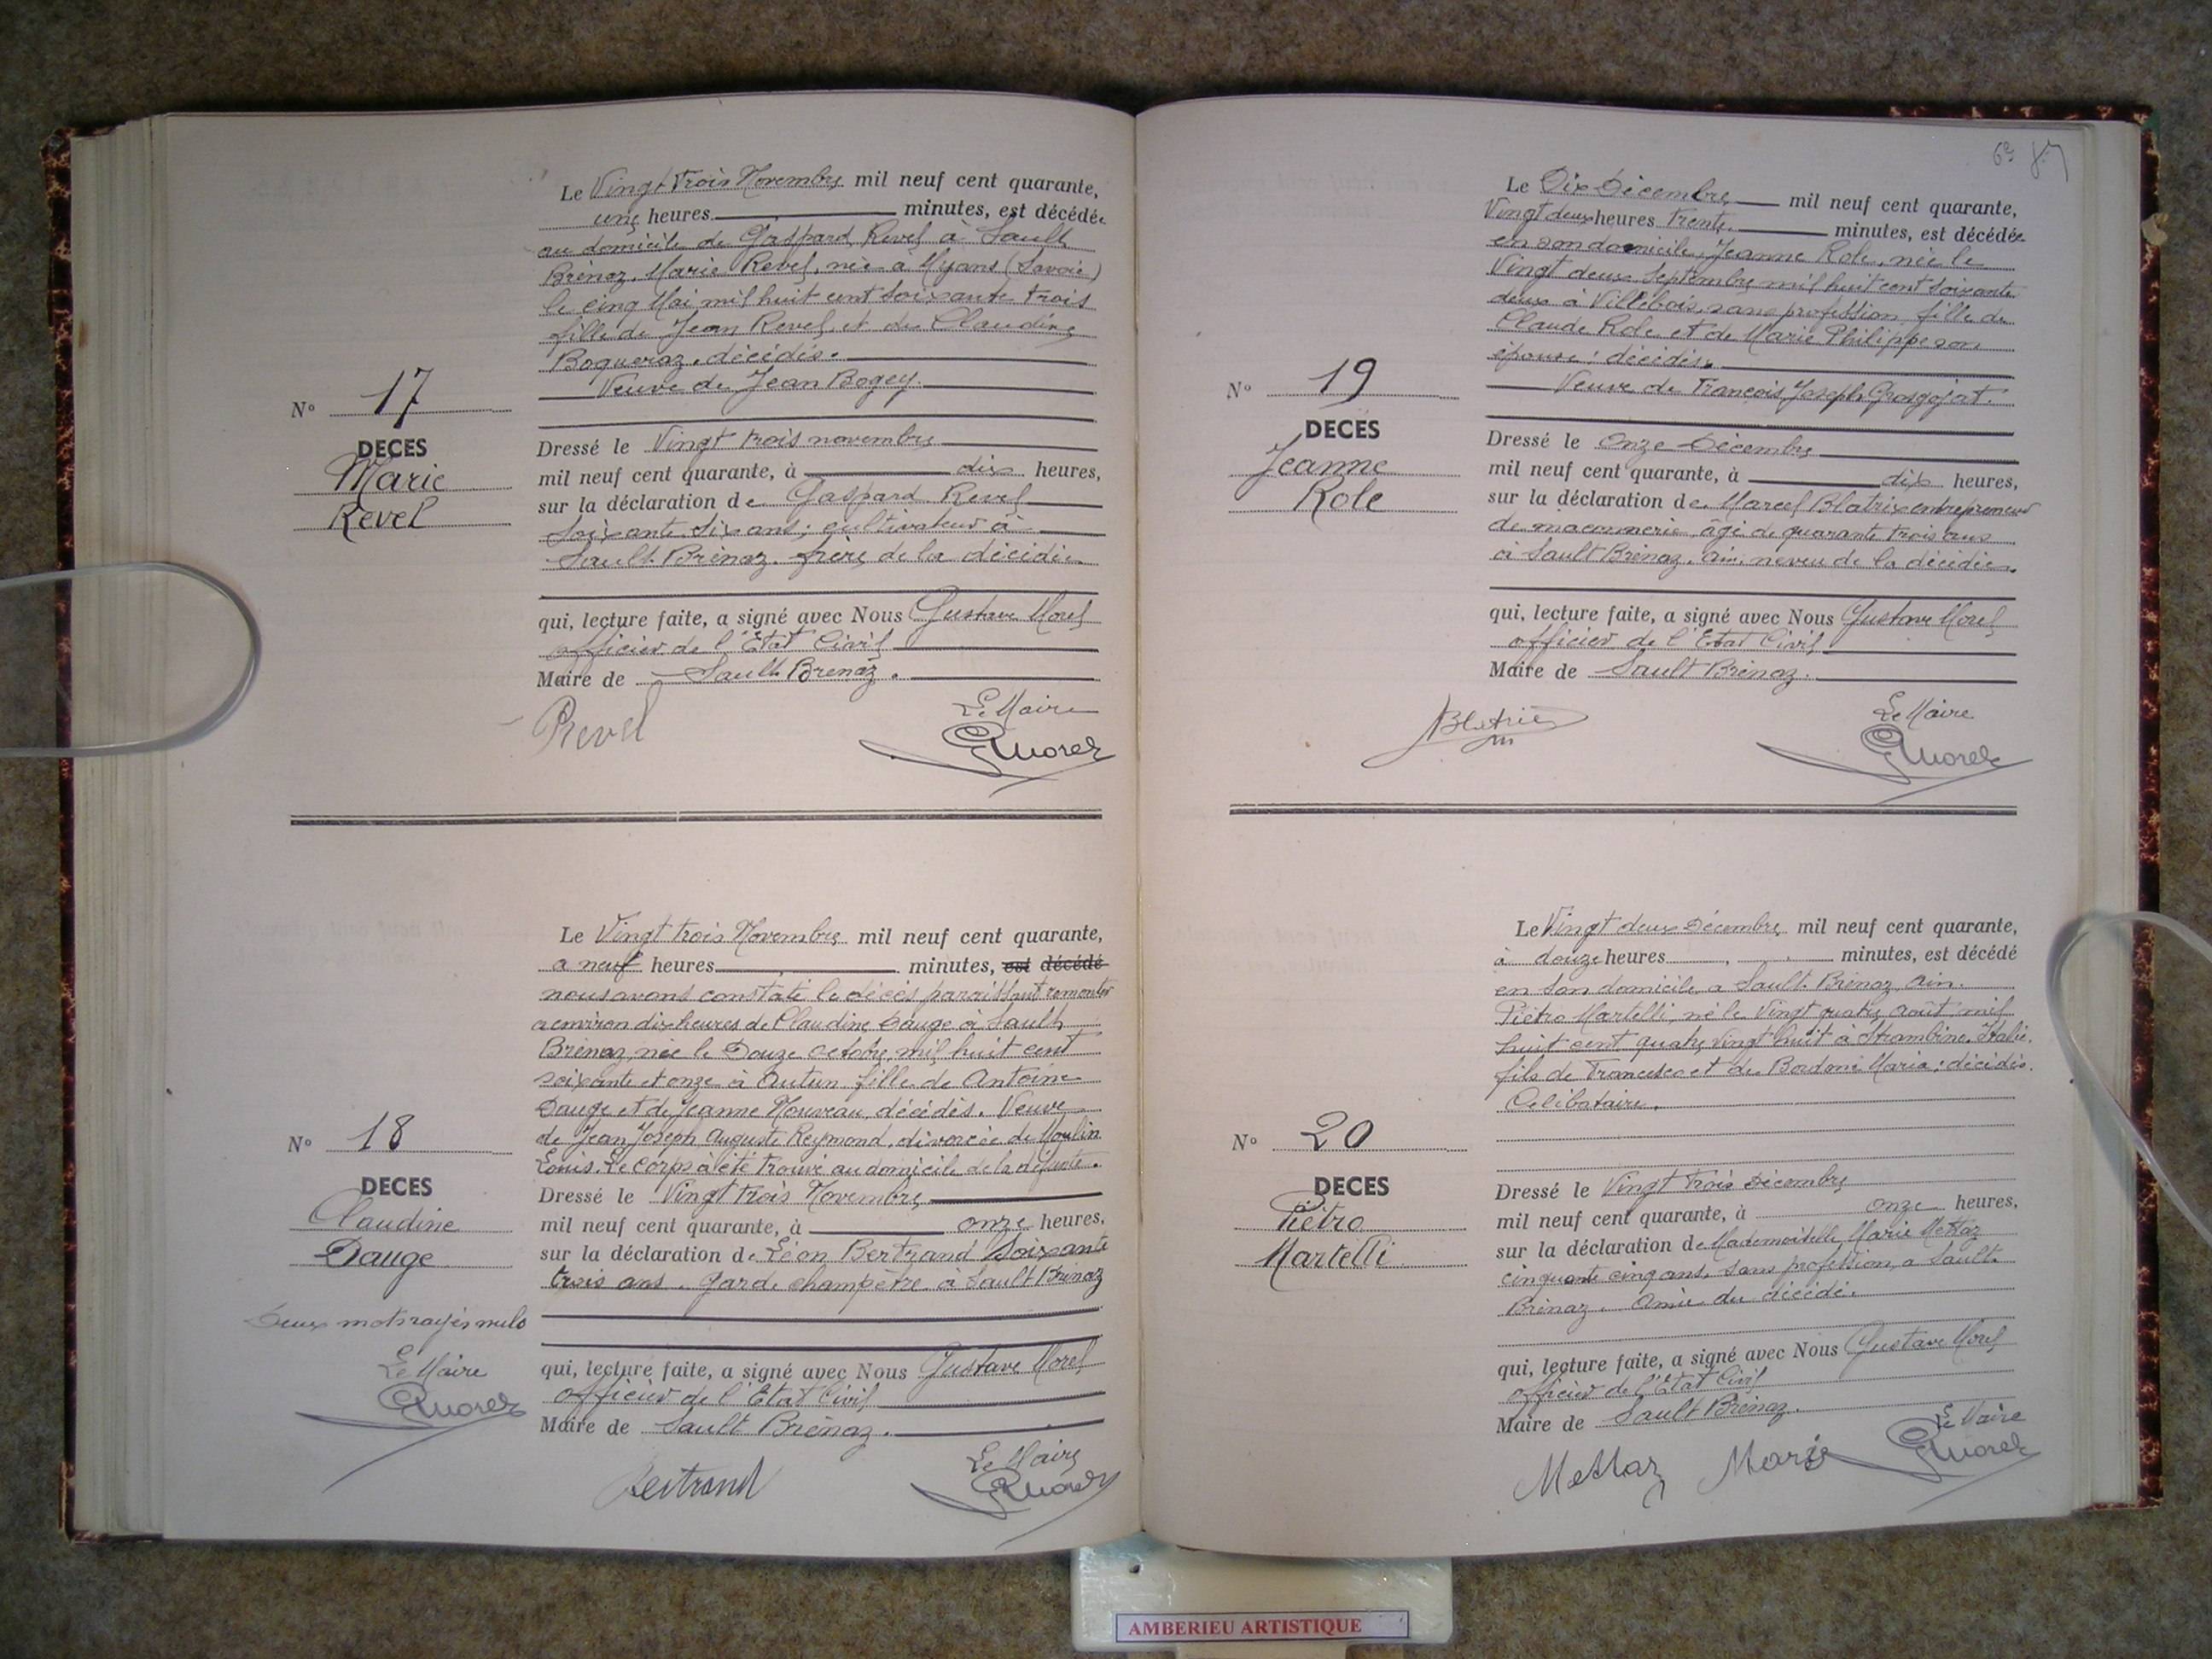 Le Vingt trois Novembre mil neuf cent quarante,
une heures minutes, est décédée
au domicile de Gaspard Revel à Sault
Brénaz, Marie Revel, née à Myans (Savoie)
le cinq Mai mil huit cent soixante trois
fille de Jean Revel et de Claudine
Boqueraz, décédés.
Veuve de Jean Bogey.
N° 17
DECES
Marie
Revel
Dressé le Vingt trois novembre
mil neuf cent quarante, à dix heures,
sur la déclaration de Gaspard Revel
soixante six ans; cultivateur à
Sault-Brénaz. frère de la décédée.
qui, lecture faite, a signé avec Nous Gustave Morel
officier de l'Etat Civil
Maire de Sault Brénaz.
Revel
Le Maire
GMorel
Le Vingt trois Novembre mil neuf cent quarante,
a neuf heures minutes, est décédé
nous avons constaté le décès paraissant remonter
a environ dix heures de Claudine Dauge à Sault
Brénaz, née le Douze octobre mil huit cent
soixante et onze à Autun fille de Antoine
Dauge et de Jeanne Nouveau, décédés. Veuve
de Jean Joseph Auguste Reymond, divorcée de Moulin
Louis. Le corps à été trouvé au domicile de la défunte.
N° 18
DECES
Claudine
Dauge
Deux mots rayés nuls
Le Maire
GMorel
Dressé le Vingt trois Novembre
mil neuf cent quarante, à onze heures,
sur la déclaration de Léon Bertrand soixante
trois ans. garde champêtre à Sault Brénaz
qui, lecture faite, a signé avec Nous Gustave Morel
officier de l'Etat Civil
Maire de Sault Brénaz.
Bertrand
Le Maire
GMorel
Le Dix Décembre mil neuf cent quarante,
Vingt deux heures trente minutes, est décédée
en son domicile, Jeanne Role, née le
Vingt deux Septembre mil huit cent soixante
deux à Villebois, sans profession, fille de
Claude Role et de Marie Philippe son
épouse: décédés.
Veuve de François Joseph Grosgojat.
N° 19
DECES
Jeanne
Role
Dressé le onze Décembre
mil neuf cent quarante, à dix heures,
sur la déclaration de Marcel Blatrix entrepreneur
de maconnerie, âgé de quarante trois ans
à Sault Brénaz, ain. neveu de la décédée.
qui, lecture faite, a signé avec Nous Gustave Morel
officier de l'Etat Civil
Maire de Sault Brénaz.
Blatrix
Le Maire
GMorel
Le Vingt deux Décembre mil neuf cent quarante,
à douze heures minutes, est décédé
en son domicile, a Sault-Brénaz, Ain.
Piétro Martelli, né le Vingt quatre Août mil
huit cent quatre Vingt huit à Strambino. Italie.
fils de Francesco et de Bordoni Maria: décédés.
Célibataire.
N° 20
DECES
Piétro
Martelli
Dressé le Vingt trois Décembre
mil neuf cent quarante, à onze heures,
sur la déclaration de Mademoiselle Marie Mettaz
cinquante cinq ans, sans profession, a Sault-
Brénaz. Amie du décédé.
qui, lecture faite, a signé avec Nous Gustave Morel
officier de l'Etat Civil
Maire de Sault Brénaz.
Mettaz Marie
Le Maire
GMorel
AMBERIEU ARTISTIQUE